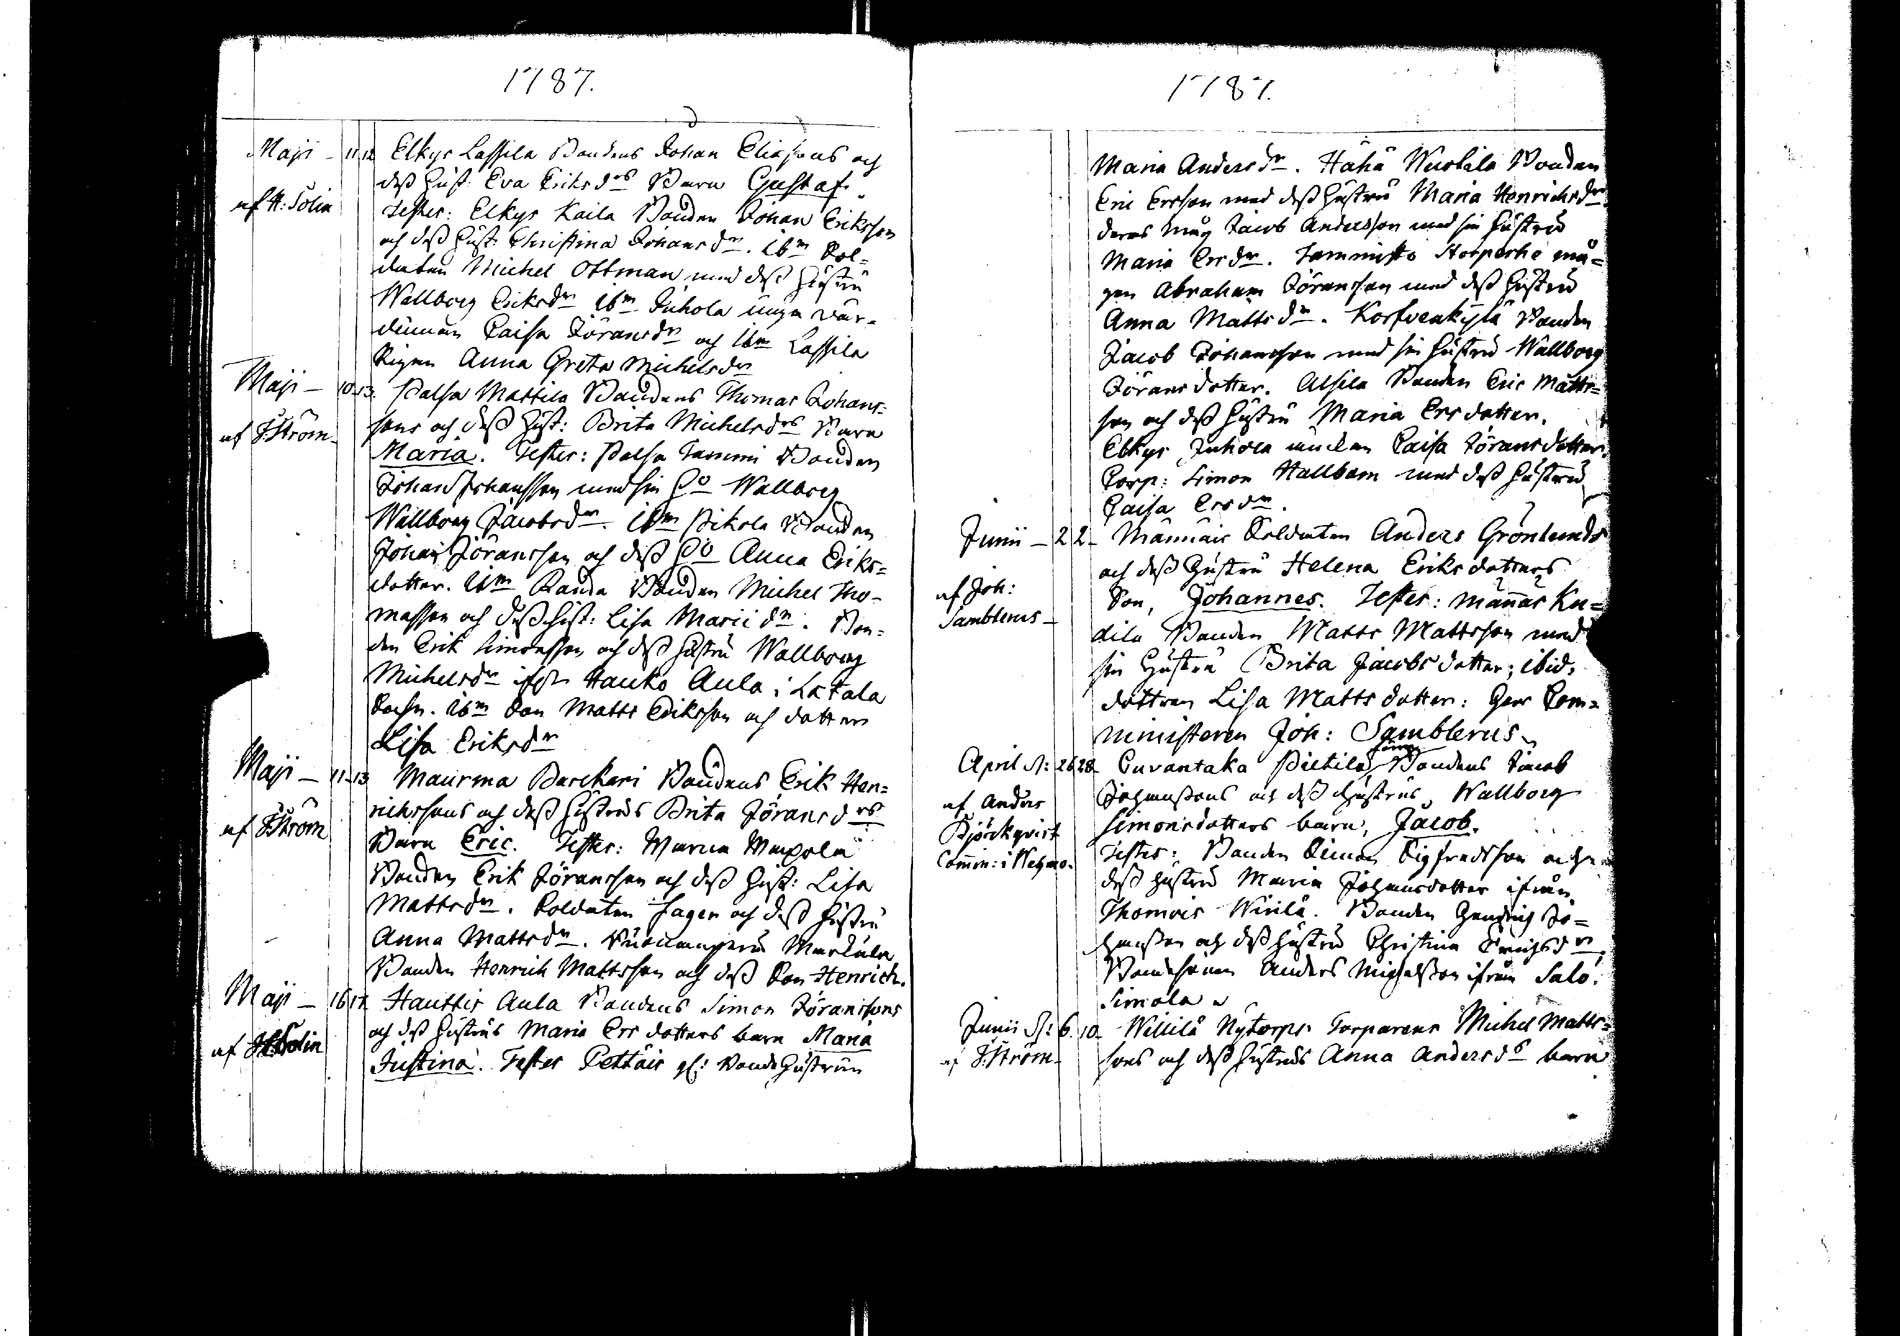 1787.
Maji - 11. 12. Elkys Lassila Bondens Johan Eliæsons och
deß Hust. Eva Eriks drs Barn Gustaf.
af H: Solin Testes: Elkys Kaila Bonden Johan Eriksson
och deß Hust. Christina Johans dr. ibm Sol=
daten Michel Ottman med deß Hustru
Wallborg Eriksdr ibm Juhola
Caisa Jöransdr och ibm Lassila
Pigan Anna Greta Michelsdr
Maji - 10. 13. Palsa Mattila Bondens Thomas Johans=
sons och deß Hust: Brita Michelsdrs Barn
af F Ström Maria. Testes: Palsa Tammi Bonden
Johan Johansson med sin Wallborg
Wallborg Jacobsdr. ibm Pikola Bonden
Johan Jöransson och deß Anna Eriks=
dotter. ibm Randa Bonden Michel Tho-
masson och deß Hust: Lisa Marii dr. Bon=
den Erik Simonsson och deß Hustru Wallborg
Michelsdr ifrån Hauko Aula i Latala
Sochn. ibm Son Matts Eriksson och dottren
Lisa Eriksdr
Maji - 11. 13. Maurma Barckari Bondens Erik Hen=
rickssons och deß Hustrus Brita Jörans drs
af FStröm Barn Eric. Testes:
Bonden Erik Jöransson och deß Hust: Lisa
Mattsdr. Soldaten Fager och deß Hustru
Anna Mattsdr.
Bonden Henrich Mattsson och deß Son Henrich.
Maji - 16. 17. Hauttis Aula Bondens Simon Jöranssons
och deß Hustrus Maria Ers dotters barn Maria
af H Solin Justina. Testes Pettäis gl: Bonde Hustrun
1787.
Maria Andersdr. Hähä Wuolila Bonden
Eric Ersson med deß Hustru Maria Henrichsdr
deras måg Jacob Andersson med sin Hustru
Maria Ersdr. Tammisto Storperhe må=
gen Abraham Jöransson med deß Hustru
Anna Mattsdr. Korfvenkylä Bonden
Jacob Johansson med sin Hustru Wallborg
Jöransdotter. Alsila Bonden Eric Matts=
son och deß Hustru Maria Ersdotter.
Elkys Juhola Caisa Jöransdotter
Corp: Simon Hallbom med deß Hustru
Caisa Ersdr.
Junii - 2 2 - Männäis Soldaten Anders Grönlunds
och deß Hustru Helena Eriksdotters
af Joh: Son, Johannes. Testes: Männäs Ku=
Samblerus - dila Bonden Matts Mattsson med
sin Hustru Brita Jacobsdotter; ibid.
dottren Lisa Mattsdotter: Herr Com=
ministeren Joh: Samblerus.
April d: 26 28 - Cuvantaka Pietilä Bondens Jacob
Johanssons och deß Hustrus Wallborg
af Anders Simonsdotters barn, Jacob.
Björkqvist Testes: Bonden Simon Sigfredsson och
Com̄in: i Wehmo. deß Hustru Maria Johansdotter ifrån
Thomois Wirilä. Bonden Hendrich Jo=
hansson och deß Hustru Christina Erichsdr,
Bondesonen Anders Michelsson ifrån Salo.
Simola
Junii d: 6. 10 - Willilä Nytorps Torparens Michel Matts=
af F: Ström - sons och deß Hustrus Anna Anders ds barn